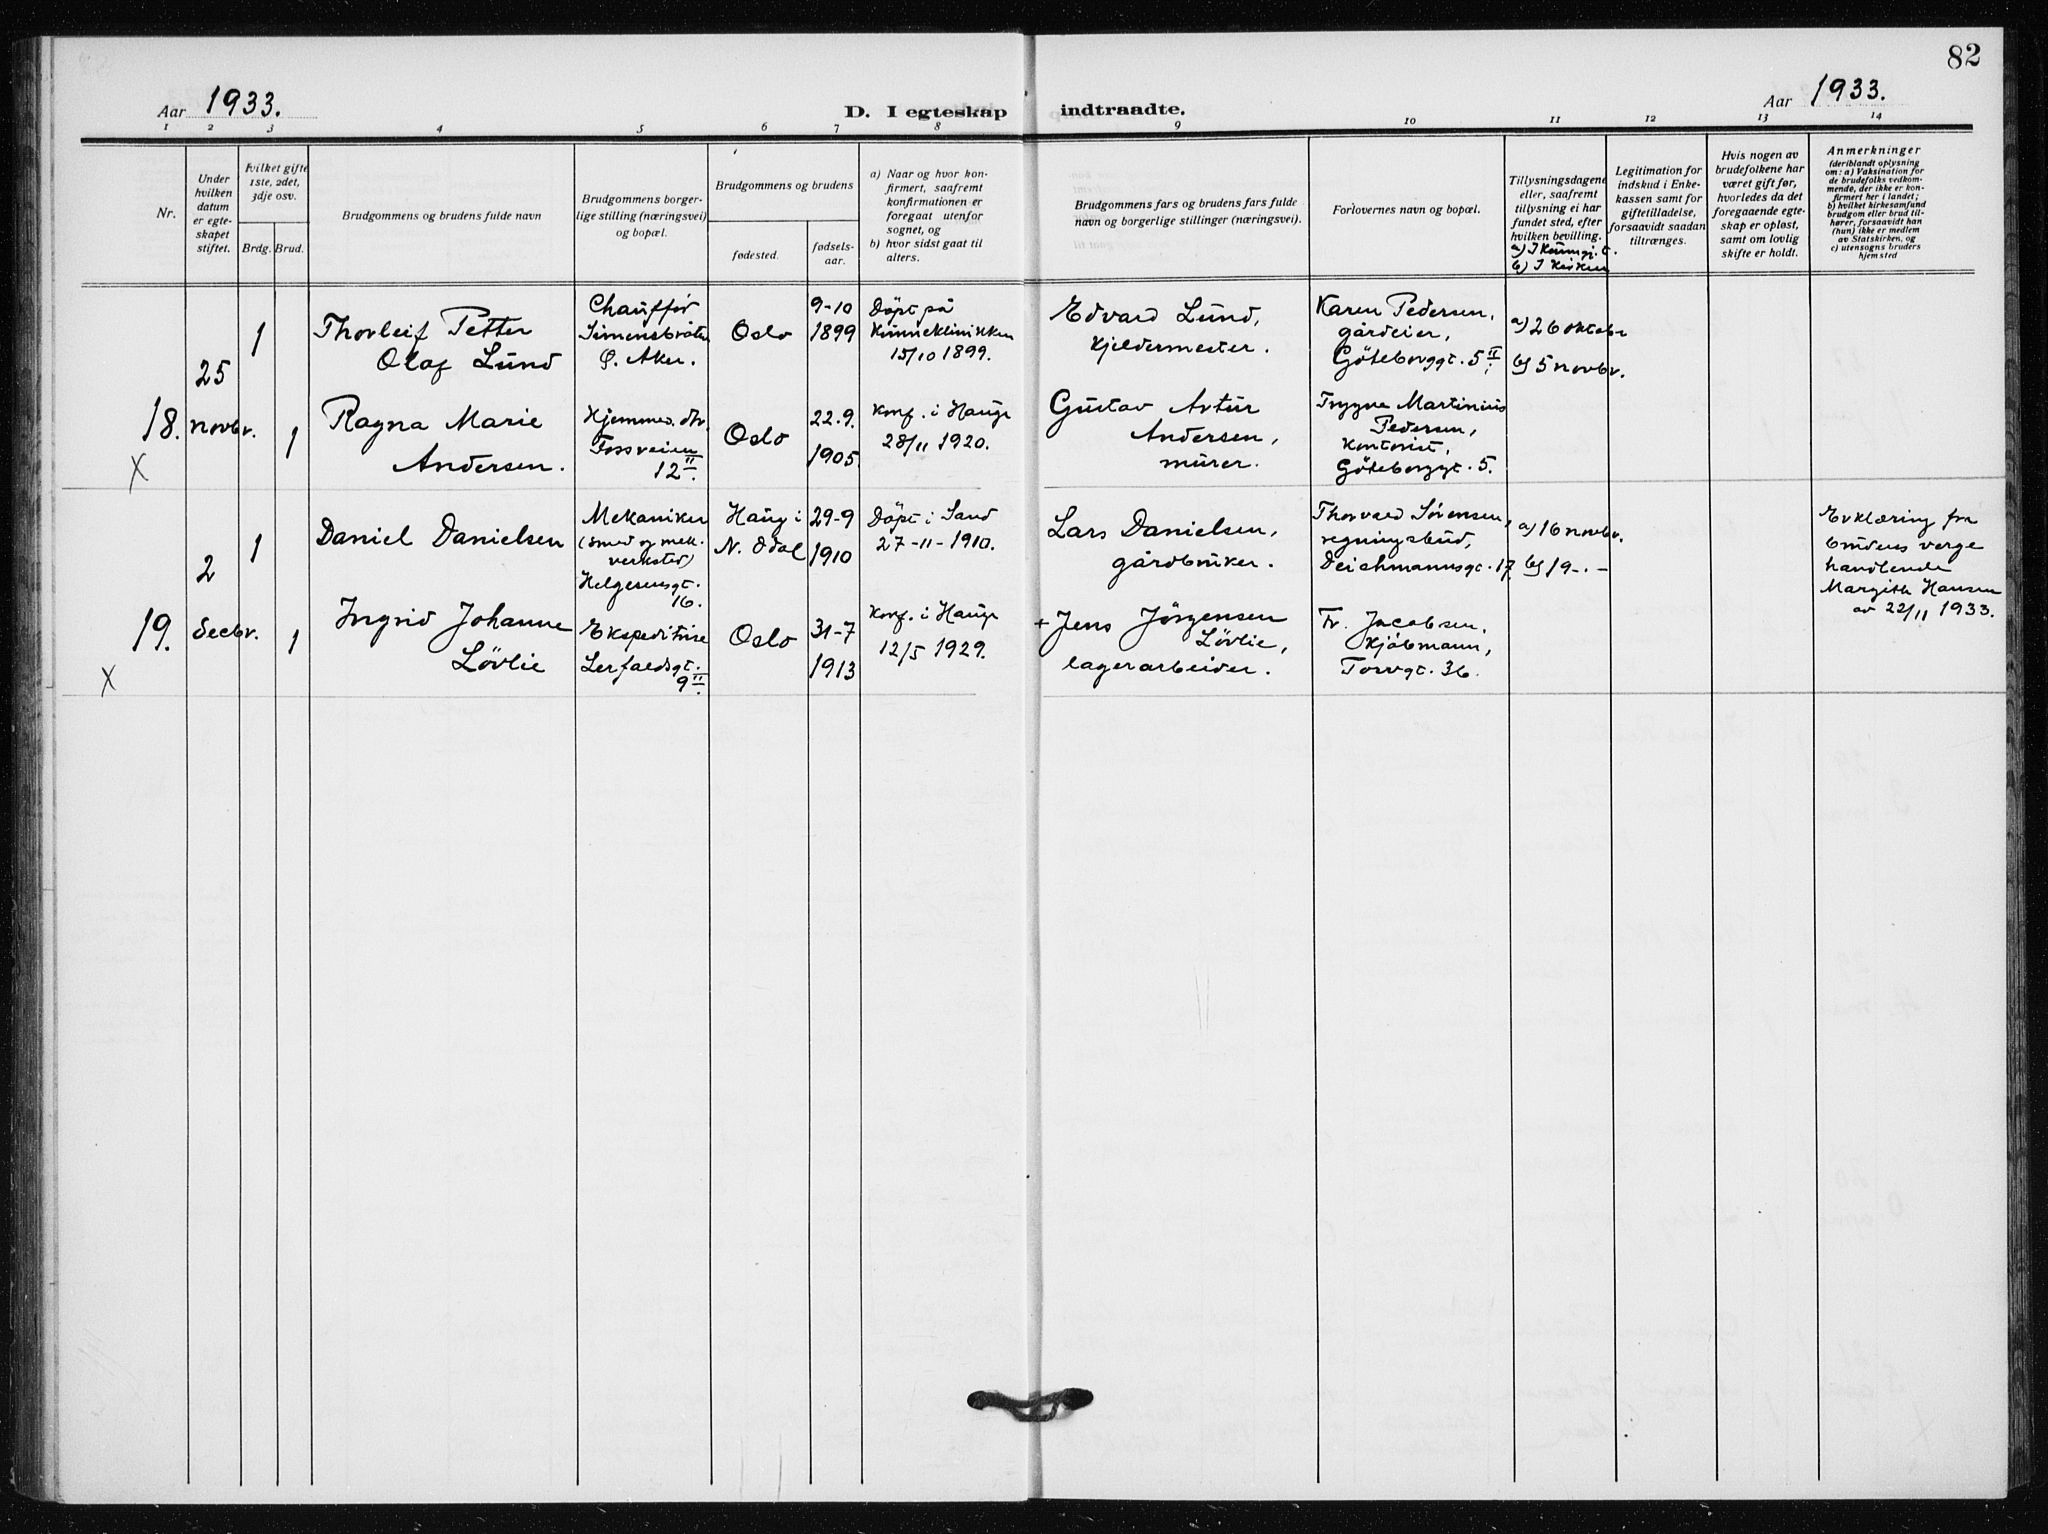 82
Aar 1933.
D. I egteskap indtraadte.
Aar 1933.
1 2 3 4 5 6 7 8 9 10 11 12 13 14
Nr.
Under
hvilken
datum
er egte-
skapet
stiftet.
Hvilket gifte
1ste, 2det,
3dje osv.
Brdg. Brud.
Brudgommens og brudens fulde navn
Brudgommens borger-
lige stilling (næringsvei)
og bopæl.
Brudgommens og brudens
fødested.
fødsels-
aar.
a) Naar og hvor kon-
firmert, saafremt
konfirmationen er
foregaat utenfor
sognet, og
b) hvor sidst gaat til
alters.
Brudgommens fars og brudens fars fulde
navn og borgerlige stillinger (næringsvei).
Forlovernes navn og bopæl.
Tillysningsdagene
eller, saafremt
tillysning ei har
fundet sted, efter
hvilken bevilling.
a) I Kunngj.t.
b) I Kirken
Legitimation for
indskud i Enke-
kassen samt for
giftetilladelse,
forsaavidt saadan
tiltrænges.
Hvis nogen av
brudefolkene har
været gift før,
hvorledes da det
foregaaende egte-
skap er opløst,
samt om lovlig
skifte er holdt.
Anmerkninger
(deriblandt oplysning
om: a) Vaksination for
de brudefolks vedkom-
mende, der ikke er kon-
firmert her i landet;
b) hvilket kirkesamfund
brudgom eller brud til-
hører, forsaavidt han
(hun) ikke er medlem
av Statskirken, og
c) utensogns bruders
hjemsted
18.
X
25
novbr.
1
Thorleif Petter
Olaf Lund
Chauffør
Simensbråten
Ø. Aker.
Oslo
9-10
1899
Döpt på
Kvinneklinikken
15/10 1899.
Edvard Lund,
kjeldermester.
Karen Pedersen,
gårdeier,
Göteborggt. 5 II.
a) 26 oktobr
b) 5 novbr.
1
Ragna Marie
Andersen.
Hjemmev. dtr.
Fossveien
12 II.
Oslo
22.9.
1905.
Konf. i Hauge
28/11 1920.
Gustav Artur
Andersen,
murer.
Trygve Martinius
Pedersen,
kontorist,
Göteborggt. 5.
19.
X
2
decbr.
1
Daniel Danielsen
Mekaniker
(smed og mek.
verksted)
Helgesensgt.
16.
Haug i
N. Odal
29-9
1910
Döpt i Sand
27-11-1910.
Lars Danielsen,
gårdbruker.
Thorvard Sørensen,
regningsbud,
Deichmannsgt. 17.
a) 16 novbr.
b) 19-.-
Erklæring fra
brudens verge
handlende
Margith Hansen
av 22/11 1933.
1
Ingrid Johanne
Lövlie
Ekspeditrise
Lerfaldsgt.
9 II.
Oslo
31-7
1913
Konf. i Hauge
12/5 1929.
+ Jens Jörgensen
Lövlie,
lagerarbeider.
Fr. Jacobsen,
Kjöbmann,
Torvgt. 36.